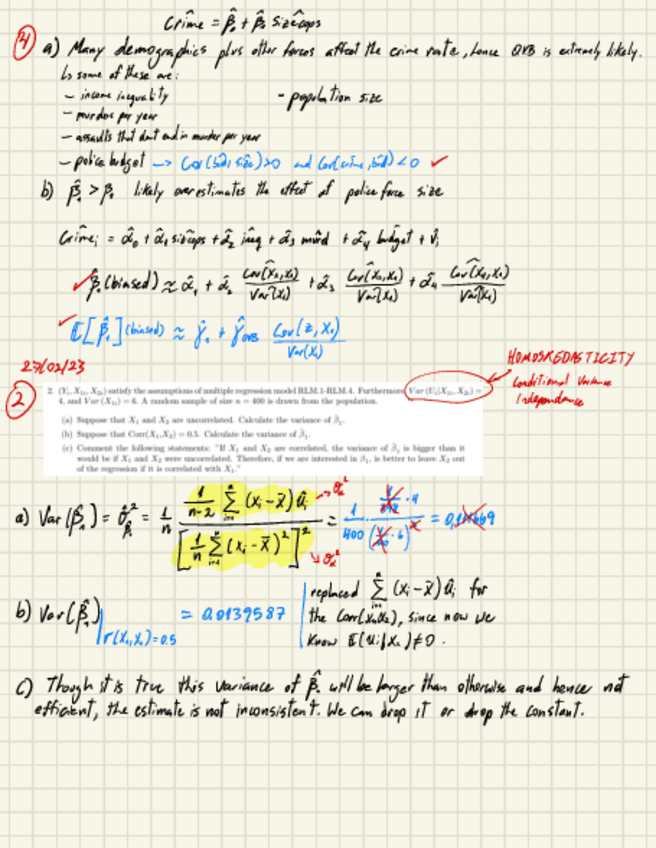 Crîme = β̂₀ + β̂₁ sizecops
4 a) Many demographics plus other forces affect the crime rate, hence OVB is extremely likely.
↳ some of these are:
- income inequality
- population size
- murders per year
- assaults that don't end in murder per year
- police budget → Cov(bud, size)>0 and Cov(crime, bud)<0 ✓
b) β̂₁ > β₁ likely overestimates the effect of police force size
Crîmeᵢ = α̂₀ + α̂₁ sizecops + α̂₂ ineq + α̂₃ murd + α̂₄ budget + v̂ᵢ
✓ β̂₁(biased) ≈ α̂₁ + α̂₂ Cov(x₁,x₂)/Var(x₁) + α̂₃ Cov(x₁,x₃)/Var(x₁) + α̂₄ Cov(x₄,x₁)/Var(x₁)
✓ E[β̂₁](biased) ≈ γ̂₁ + γ̂OVB Cov(z, X₁)/Var(X₁)
27/02/23
HOMOSKEDASTICITY
Conditional Variance
Independence
2
2. (Yᵢ, X₁ᵢ, X₂ᵢ) satisfy the assumptions of multiple regression model RLM.1-RLM.4. Furthermore, Var(Uᵢ|X₁ᵢ, X₂ᵢ) =
4, and Var(X₁ᵢ) = 6. A random sample of size n = 400 is drawn from the population.
(a) Suppose that X₁ and X₂ are uncorrelated. Calculate the variance of β̂₁.
(b) Suppose that Corr(X₁,X₂) = 0.5. Calculate the variance of β̂₁.
(c) Comment the following statements: "If X₁ and X₂ are correlated, the variance of β̂₁ is bigger than it
would be if X₁ and X₂ were uncorrelated. Therefore, if we are interested in β₁, is better to leave X₂ out
of the regression if it is correlated with X₁."
a) Var(β̂₁) = σ̂²β̂₁ = 1/n · 1/(n-2) Σ(xᵢ-x̄)ûᵢ / [1/n Σ(xᵢ-x̄)²]² = 1/400 ·
b) Var(β̂₁)|r(X₁,X₂)=0.5 = 0.0139587
replaced Σ(xᵢ-x̄)ûᵢ for
the Corr(x₁,x₂), since now we
know E(uᵢ|X₁)≠0.
c) Though it is true this variance of β̂₁ will be larger than otherwise and hence not
efficient, the estimate is not inconsistent. We can drop it or drop the constant.